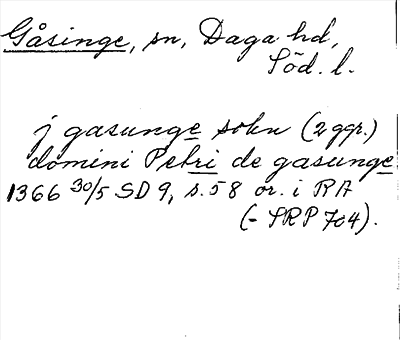 Gåsinge, sn, Daga hd,
Söd. l.
j gasunge sokn (2 ggr.)
domini Petri de gasunge
1366 30/5 SD 9, s. 58 or. i RA
(- SRP 704).